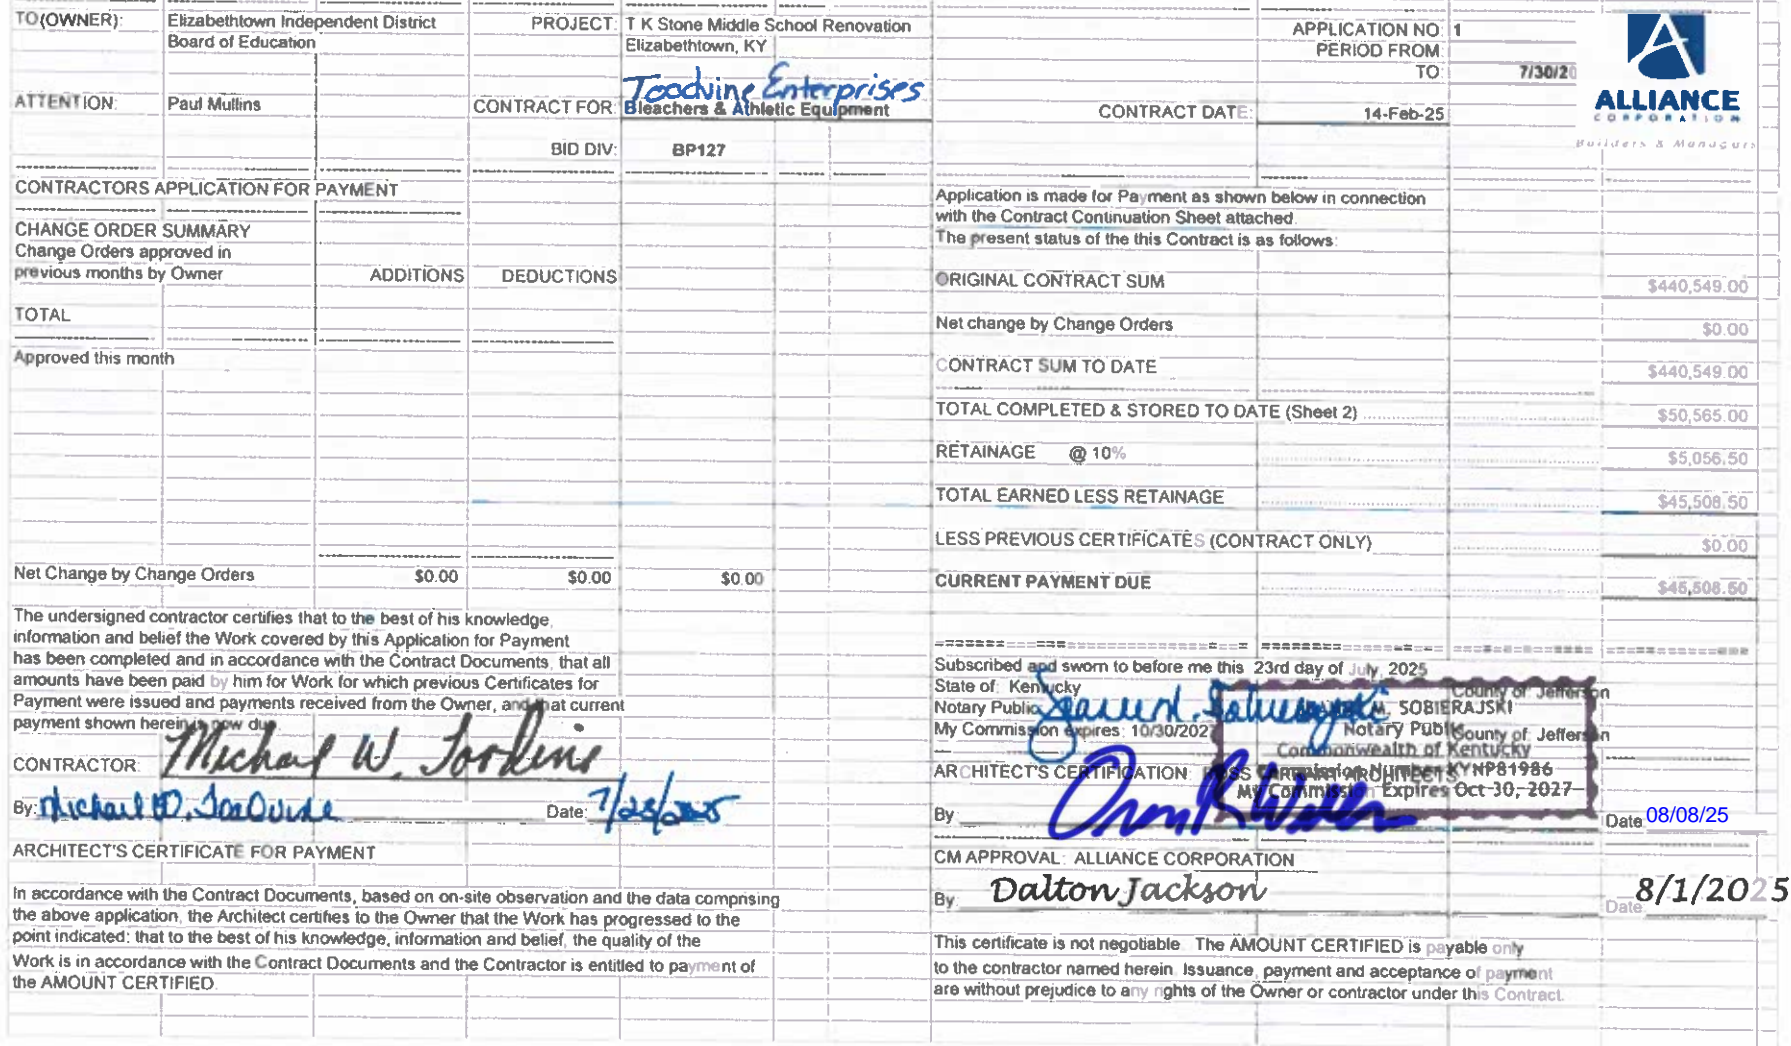 TO(OWNER): Elizabethtown Independent District
Board of Education
PROJECT: T K Stone Middle School Renovation
Elizabethtown, KY
APPLICATION NO: 1
PERIOD FROM
TO: 7/30/2
ALLIANCE
CORPORATION
Builders & Managers
ATTENTION: Paul Mullins
Toadvine Enterprises
CONTRACT FOR: Bleachers & Athletic Equipment
CONTRACT DATE: 14-Feb-25
BID DIV: BP127
CONTRACTORS APPLICATION FOR PAYMENT
CHANGE ORDER SUMMARY
Change Orders approved in
previous months by Owner ADDITIONS DEDUCTIONS
TOTAL
Approved this month
Net Change by Change Orders $0.00 $0.00 $0.00
The undersigned contractor certifies that to the best of his knowledge,
information and belief the Work covered by this Application for Payment
has been completed and in accordance with the Contract Documents, that all
amounts have been paid by him for Work for which previous Certificates for
Payment were issued and payments received from the Owner, and that current
payment shown herein is now due
CONTRACTOR:
By: Date: 7/23/2025
ARCHITECT'S CERTIFICATE FOR PAYMENT
In accordance with the Contract Documents, based on on-site observation and the data comprising
the above application, the Architect certifies to the Owner that the Work has progressed to the
point indicated: that to the best of his knowledge, information and belief, the quality of the
Work is in accordance with the Contract Documents and the Contractor is entitled to payment of
the AMOUNT CERTIFIED.
Application is made for Payment as shown below in connection
with the Contract Continuation Sheet attached.
The present status of the this Contract is as follows:
ORIGINAL CONTRACT SUM $440,549.00
Net change by Change Orders $0.00
CONTRACT SUM TO DATE $440,549.00
TOTAL COMPLETED & STORED TO DATE (Sheet 2) $50,565.00
RETAINAGE @ 10% $5,056.50
TOTAL EARNED LESS RETAINAGE $45,508.50
LESS PREVIOUS CERTIFICATES (CONTRACT ONLY) $0.00
CURRENT PAYMENT DUE $45,508.50
Subscribed and sworn to before me this 23rd day of July, 2025
State of: Kentucky County of Jefferson
Notary Public M. SOBIERAJSKI
My Commission expires: 10/30/2027 Notary Public County of: Jefferson
Commonwealth of Kentucky
Commission Number KYNP81986
My Commission Expires Oct 30, 2027
ARCHITECT'S CERTIFICATION: ARCHITECTS
By Date 08/08/25
CM APPROVAL: ALLIANCE CORPORATION
By: Dalton Jackson Date 8/1/2025
This certificate is not negotiable The AMOUNT CERTIFIED is payable only
to the contractor named herein. Issuance, payment and acceptance of payment
are without prejudice to any rights of the Owner or contractor under this Contract.